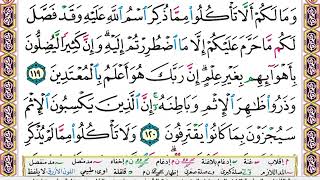 وَمَا لَكُمْ أَلَّا تَأْكُلُوا۟ مِمَّا ذُكِرَ ٱسْمُ ٱللَّهِ عَلَيْهِ وَقَدْ فَصَّلَ
لَكُم مَّا حَرَّمَ عَلَيْكُمْ إِلَّا مَا ٱضْطُرِرْتُمْ إِلَيْهِ ۗ وَإِنَّ كَثِيرًا لَّيُضِلُّونَ
بِأَهْوَآئِهِم بِغَيْرِ عِلْمٍ ۗ إِنَّ رَبَّكَ هُوَ أَعْلَمُ بِٱلْمُعْتَدِينَ ١١٩
وَذَرُوا۟ ظَٰهِرَ ٱلْإِثْمِ وَبَاطِنَهُۥٓ ۚ إِنَّ ٱلَّذِينَ يَكْسِبُونَ ٱلْإِثْمَ
سَيُجْزَوْنَ بِمَا كَانُوا۟ يَقْتَرِفُونَ ١٢٠ وَلَا تَأْكُلُوا۟ مِمَّا لَمْ يُذْكَرِ